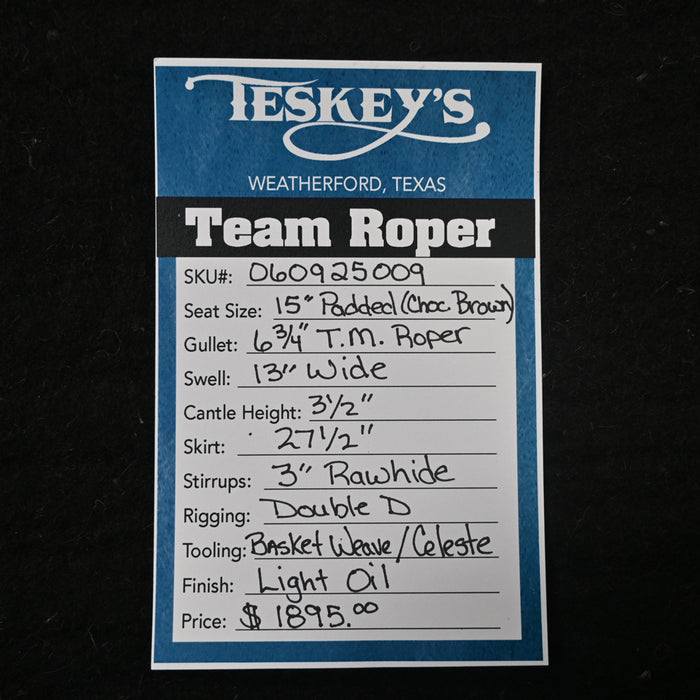 TESKEY'S
WEATHERFORD, TEXAS
Team Roper
SKU#: 060925009
Seat Size: 15" Padded (Choc. Brown)
Gullet: 6 3/4" T.M. Roper
Swell: 13" Wide
Cantle Height: 3 1/2"
Skirt: 27 1/2"
Stirrups: 3" Rawhide
Rigging: Double D
Tooling: Basket Weave / Celeste
Finish: Light Oil
Price: $ 1895.00